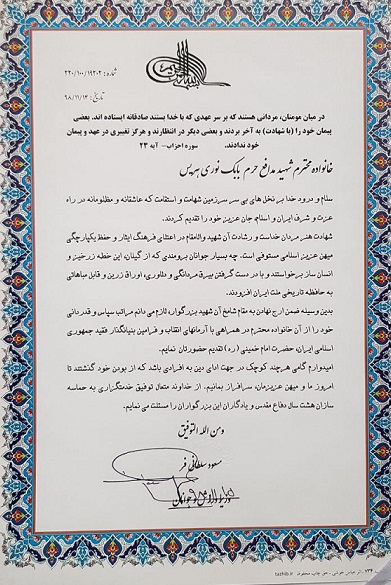 شماره: ۲۲۰/۱۰۰/۱۹۲۰۲
تاریخ: ۹۸/۱۱/۱۳
در میان مومنان، مردانی هستند که بر سر عهدی که با خدا بستند صادقانه ایستاده اند. بعضی
پیمان خود را (با شهادت) به آخر بردند و بعضی دیگر در انتظارند و هرگز تغییری در عهد و پیمان
خود ندادند.
سوره احزاب- آیه ۲۳
خانواده محترم شهید مدافع حرم بابک نوری هریس
سلام و درود خدا بر نخل های بی سر سرزمین شهادت و استقامت که عاشقانه و مظلومانه در راه
عزت و شرف ایران و اسلام، جان عزیز خود را تقدیم کردند.
شهادت هنر مردان خداست و رشادت آن شهید والامقام در اعتلای فرهنگ ایثار و حفظ یکپارچگی
میهن عزیز اسلامی مستوفی است. چه بسیار جوانان برومندی که از گیلان، این خطه زرخیز و
انسان ساز برخواستند و با در دست گرفتن بیرق مردانگی و دلاوری، اوراق زرین و قابل مباهاتی
به حافظه تاریخی ملت ایران افزودند.
بدین وسیله ضمن ارج نهادن به مقام شامخ آن شهید بزرگوار، لازم می دانم مراتب سپاس و قدردانی
خود را از آن خانواده محترم در همراهی با آرمانهای انقلاب و فرامین بنیانگذار فقید جمهوری
اسلامی ایران، حضرت امام خمینی (ره) تقدیم حضورتان نمایم.
امیدوارم گامی هرچند کوچک در جهت ادای دین به افرادی باشد که از بودن خود گذشتند تا
امروز ما و میهن عزیزمان، سرافراز بمانیم. از خداوند متعال توفیق خدمتگزاری به حماسه
سازان هشت سال دفاع مقدس و یادگاران این بزرگواران را مسئلت می نمایم.
ومن الله التوفیق
مسعود سلطانی فر
وزیر ورزش و جوانان